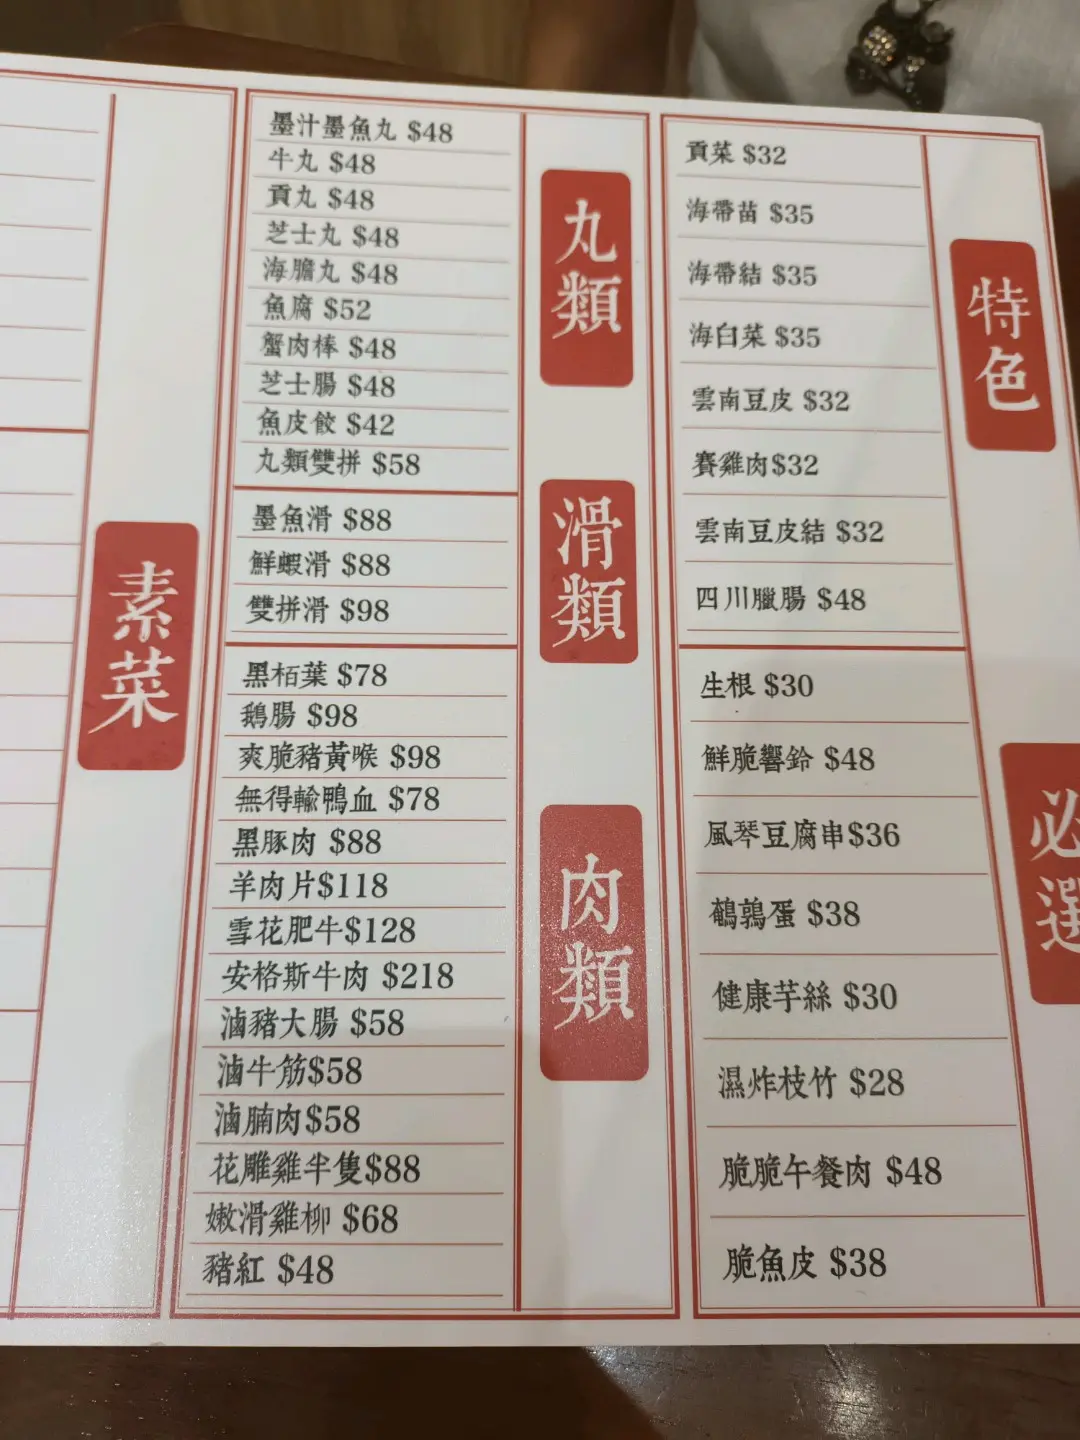 素菜
墨汁墨魚丸 $48
牛丸 $48
貢丸 $48
芝士丸 $48
海膽丸 $48
魚腐 $52
蟹肉棒 $48
芝士腸 $48
魚皮餃 $42
丸類雙拼 $58
丸類
墨魚滑 $88
鮮蝦滑 $88
雙拼滑 $98
滑類
黑栢葉 $78
鵝腸 $98
爽脆豬黃喉 $98
無得輸鴨血 $78
黑豚肉 $88
羊肉片$118
雪花肥牛$128
安格斯牛肉 $218
滷豬大腸 $58
滷牛筋$58
滷腩肉$58
花雕雞半隻$88
嫩滑雞柳 $68
豬紅 $48
肉類
貢菜 $32
海帶苗 $35
海帶結 $35
海白菜 $35
雲南豆皮 $32
賽雞肉$32
雲南豆皮結 $32
四川臘腸 $48
特色
生根 $30
鮮脆響鈴 $48
風琴豆腐串$36
鵪鶉蛋 $38
健康芋絲 $30
濕炸枝竹 $28
脆脆午餐肉 $48
脆魚皮 $38
必選